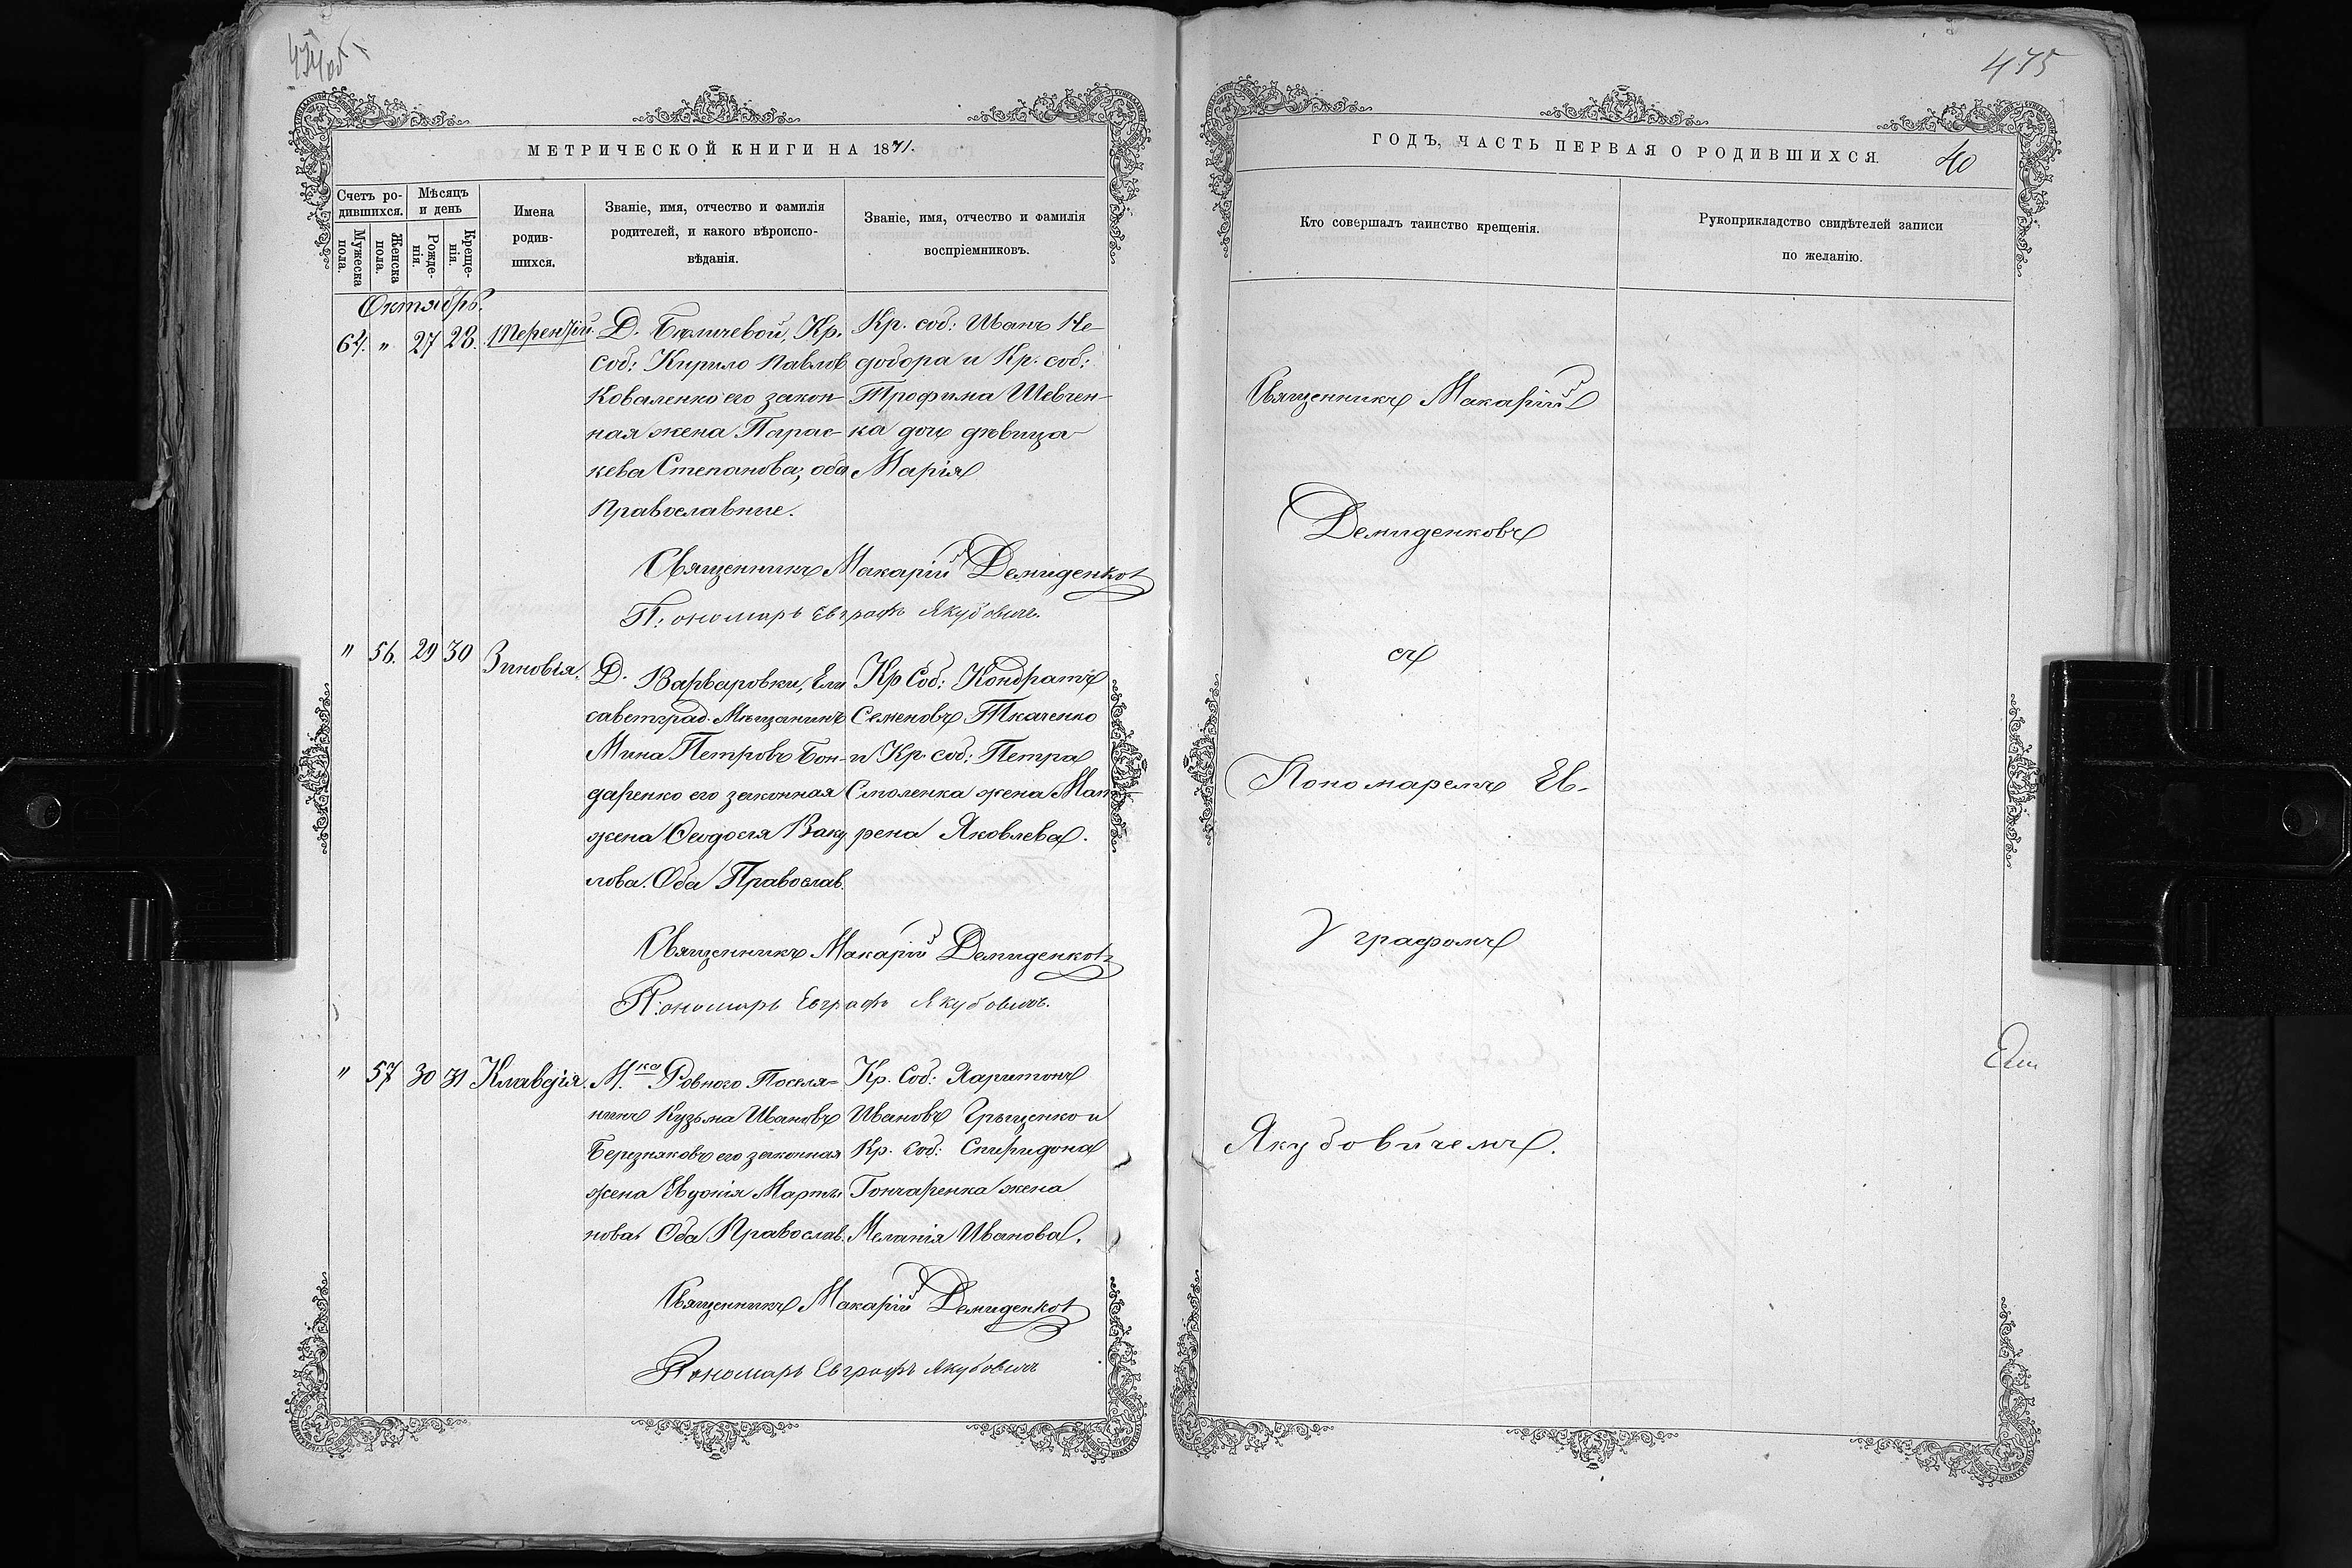 474об
МЕТРИЧЕСКОЙ КНИГИ НА 1871.
Счетъ ро-
дившихся.
Мѣсяцъ
и день
Мужеска
пола.
Женска
пола.
Рожде-
нія.
Креще-
нія.
Имена
родив-
шихся.
Званіе, имя, отчество и фамилія
родителей, и какого вѣроиспо-
вѣданія.
Званіе, имя, отчество и фамилія
воспріемниковъ.
Октябрь.
64. " 27 28. Терентій.
Д. Кр.
соб: Кирило Павлов
Коваленко его закон-
ная жена Парас-
кева Степанова; оба
Православные.
Кр. соб: Иванъ Не-
добора и Кр. соб:
Трофима Шевчен-
ка дочь дѣвица
Марія
Священникъ Макарій Демиденков
Пономарь Евграфъ Якубовичъ.
" 56. 29 30 Зиновія.
Д. Варваровки, Ели
саветград. Мѣщанинъ
Мина Петровъ Бон-
даренко его законная
жена ФеодосіяВаку
лова. Оба Православ.
Кр Соб: Кондратъ
Семеновъ Ткаченко
и Кр. соб: Петра
Смоленка жена Мат
рена Яковлева.
Священникъ Макарій Демиденковъ
Пономарь Евграфъ Якубовичъ.
" 57 30 31 Клавдія.
М.ка Ровного Поселя=
нинъ Кузьма Ивановъ
Березняковъ его законная
жена Евдокія Марты
нова. Оба Православ.
Кр. Соб: Харитонъ
Ивановъ Грыценко и
Кр. Соб: Спиридона
Гончаренка жена
Меланія Иванова.
Священникъ Макарій Демиденков
Пономарь Евграфъ Якубовичъ
475
ГОДЪ, ЧАСТЬ ПЕРВАЯ О РОДИВШИХСЯ.
40
Кто совершалъ таинство крещенія.
Рукоприкладство свидѣтелей записи
по желанію.
Священникъ Макарій
Демиденковъ
съ
Пономаремъ Ев-
графомъ
Якубовичемъ.